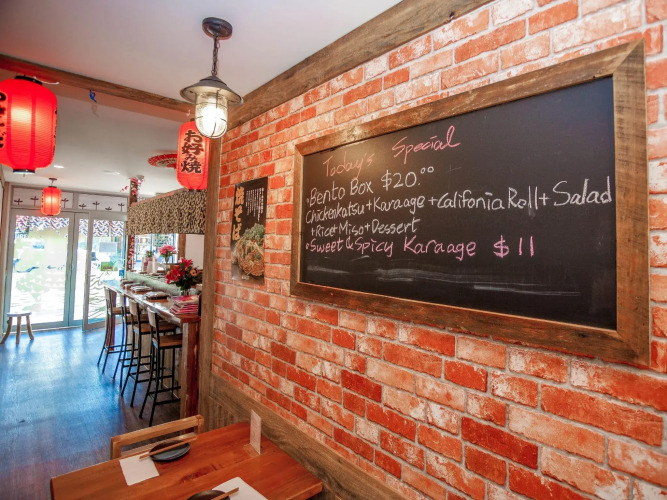 お好み焼
焼そば
Today's Special
• Bento Box $20.⁰⁰
Chickenkatsu + Karaage + Califonia Roll + Salad
+ Rice + Miso + Dessert
• Sweet & Spicy Karaage $11